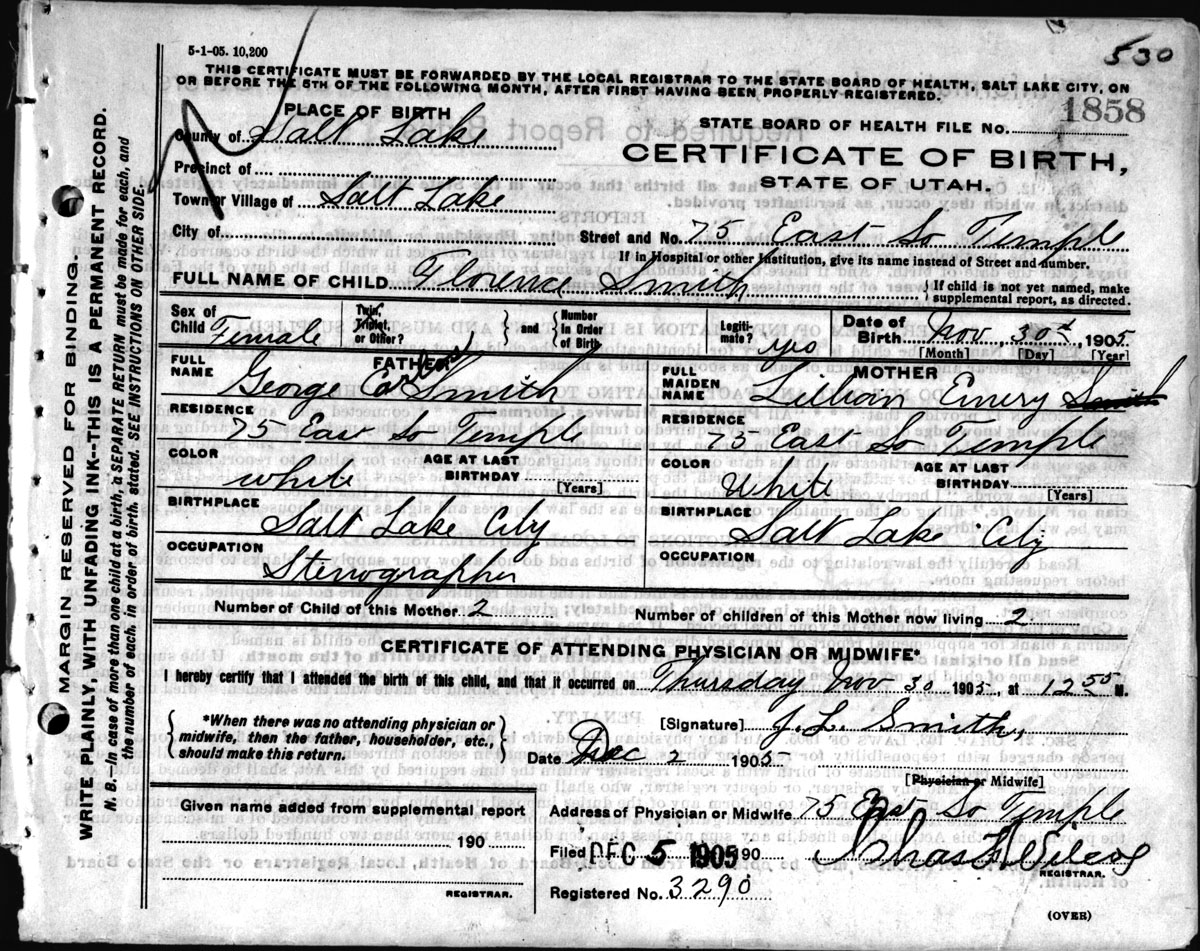 5-1-05. 10,200
530
THIS CERTIFICATE MUST BE FORWARDED BY THE LOCAL REGISTRAR TO THE STATE BOARD OF HEALTH, SALT LAKE CITY, ON
OR BEFORE THE 5TH OF THE FOLLOWING MONTH, AFTER FIRST HAVING BEEN PROPERLY REGISTERED.
PLACE OF BIRTH
1858
STATE BOARD OF HEALTH FILE NO.
County of Salt Lake
CERTIFICATE OF BIRTH,
Precinct of
STATE OF UTAH.
Town or Village of Salt Lake
City of
Street and No. 75 East So Temple
If in Hospital or other Institution, give its name instead of Street and number.
FULL NAME OF CHILD Florence Smith
{ If child is not yet named, make
supplemental report, as directed.
Sex of Child Female
Twin, Triplet, or Other? } and { Number in Order of Birth
Legitimate? Yes
Date of Birth Nov 30th 1905
[Month] [Day] [Year]
FATHER
FULL NAME George Smith
RESIDENCE
75 East So Temple
COLOR white
AGE AT LAST BIRTHDAY
[Years]
BIRTHPLACE
Salt Lake City
OCCUPATION
Stenographer
MOTHER
FULL MAIDEN NAME Lillian Emery Smith
RESIDENCE
75 East So Temple
COLOR White
AGE AT LAST BIRTHDAY
[Years]
BIRTHPLACE
Salt Lake City
OCCUPATION
Number of Child of this Mother 2
Number of children of this Mother now living 2
CERTIFICATE OF ATTENDING PHYSICIAN OR MIDWIFE*
I hereby certify that I attended the birth of this child, and that it occurred on Thursday Nov 30 1905, at 12 55 M.
{ *When there was no attending physician or
midwife, then the father, householder, etc.,
should make this return. }
[Signature] J. L. Smith,
Date Dec 2 1905
[Physician or Midwife]
Given name added from supplemental report
190
REGISTRAR.
Address of Physician or Midwife 75 East So Temple
Filed DEC 5 1905 190
REGISTRAR.
Registered No. 3290
(OVER)
MARGIN RESERVED FOR BINDING.
WRITE PLAINLY, WITH UNFADING INK--THIS IS A PERMANENT RECORD.
N. B.--In case of more than one child at a birth, a SEPARATE RETURN must be made for each, and
the number of each, in order of birth, stated. SEE INSTRUCTIONS ON OTHER SIDE.